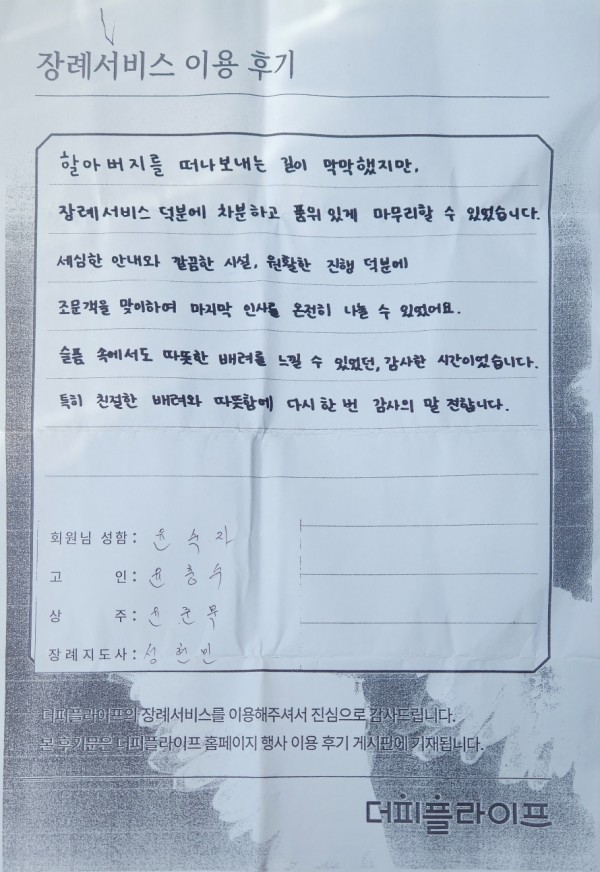 장례서비스 이용 후기
할아버지를 떠나보내는 길이 막막했지만,
장례서비스 덕분에 차분하고 품위 있게 마무리할 수 있었습니다.
세심한 안내와 깔끔한 시설, 원활한 진행 덕분에
조문객을 맞이하며 마지막 인사를 온전히 나눌 수 있었어요.
슬픔 속에서도 따뜻한 배려를 느낄 수 있었던, 감사한 시간이었습니다.
특히 친절한 배려와 따뜻함에 다시 한 번 감사의 말 전합니다.
회원님 성함: 윤숙자
고 인: 윤흥수
상 주: 윤준묵
장례지도사: 성현민
더피플라이프의 장례서비스를 이용해주셔서 진심으로 감사드립니다.
본 후기문은 더피플라이프 홈페이지 행사 이용 후기 게시판에 기재됩니다.
더피플라이프